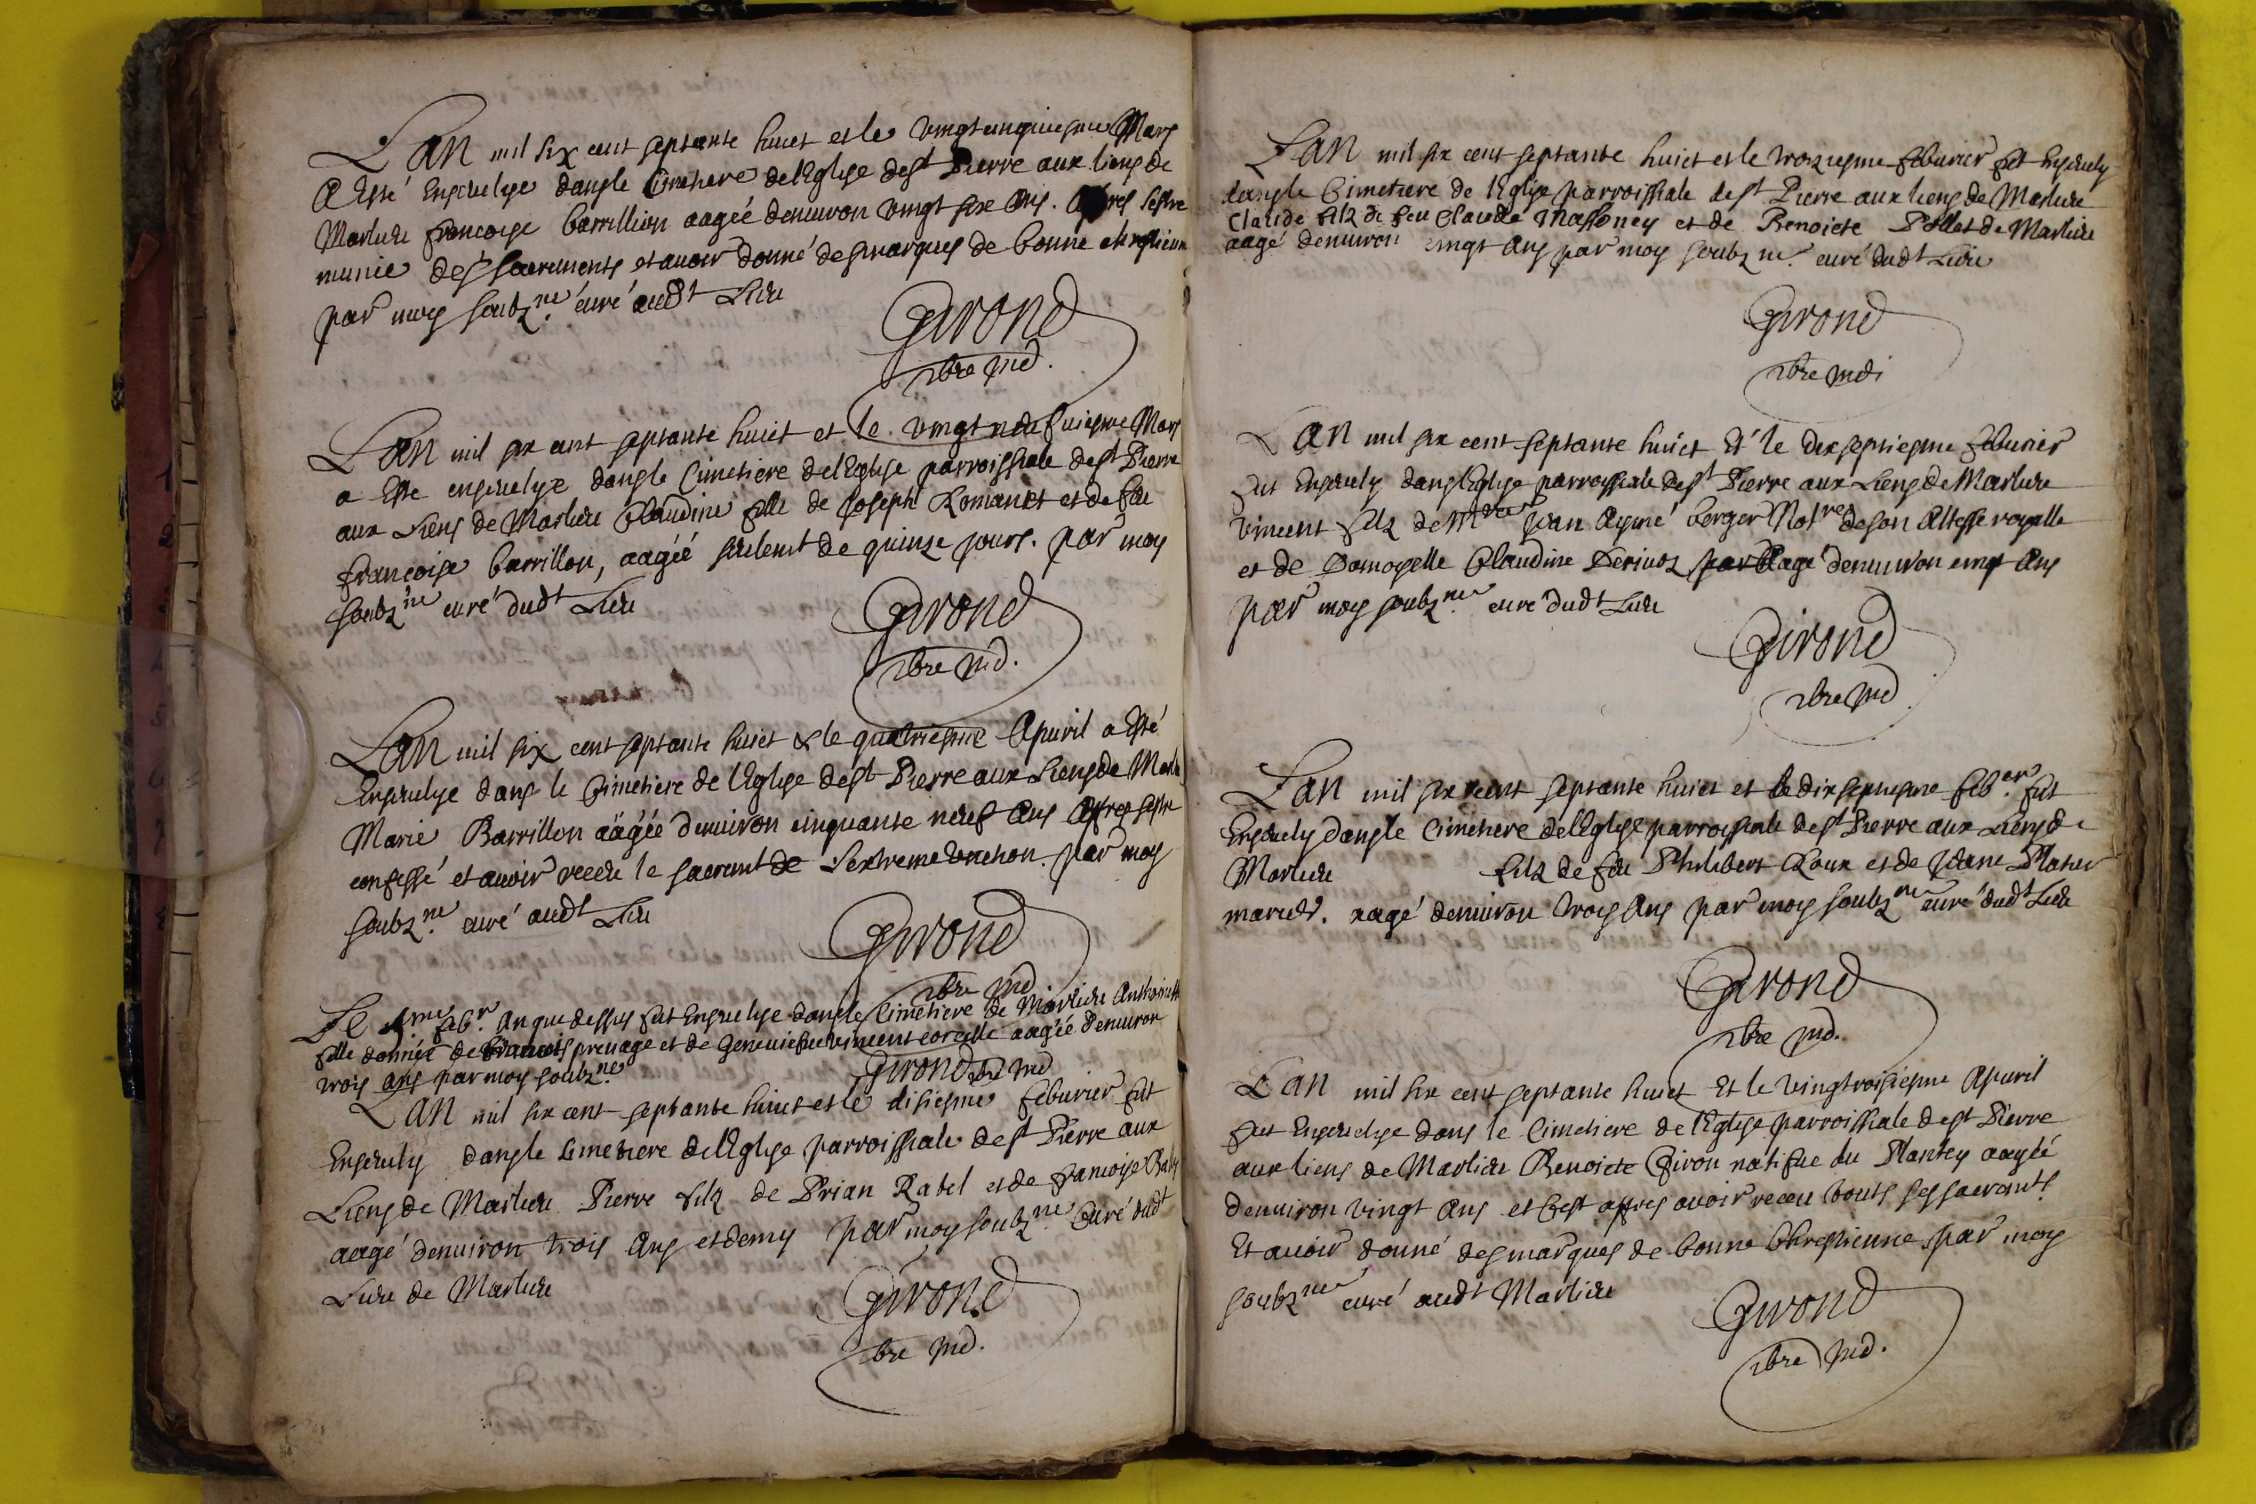 L'an mil six cent septante huict et le vingt cinquiesme Mars
a Esté Ensevelye dans le Cimetiere de l'Eglise de st Pierre aux liens de
Marlieu francoise barrillion aagée denuiron vingt six Ans. Apres sestre
munie des sacrements et auoir donné des marques de bonne chrestienne
par moy soubz.né curé audt Lieu
Girond
pbre ind.
L'an mil six cent septante huict et le vingt neufuiesme Mars
a Esté ensevelye dans le Cimetiere de l'Eglise parroissiale de st Pierre
aux Liens de Marlieu Claudine fille de Joseph Romanet et de feu
françoise barrillon, aagée seulemt de quinze jours. par moy
soubz.né curé dudt Lieu
Girond
pbre ind.
L'an mil six cent septante huict & le quatriesme Apuril a Esté
Ensevelye dans le Cimetiere de l'Eglise de st Pierre aux Liens de Marlieu
Marie Barrillon aagée denuiron cinquante neuf Ans Apres sestre
confessé et auoir receu le sacremt de L'extreme onction. par moy
soubz.né curé audt Lieu
Girond
pbre ind
Le feb.r an que dessus fut Ensevelye dans le Cimetiere de Marlieu Anthoinette
fille donnée de preuage et de Geneuiefue vincent aagée denuiron
trois ans par moy soubz.né
Girond pbre ind
L'an mil six cent septante huict et le disiesme feburier fut
Ensevely dans le cimetiere de l'Eglise parroissiale de st Pierre aux
Liens de Marlieu Pierre filz de Prian Ratel et de francoise
aagé denuiron trois Ans et demy par moy soubz.né Curé dudt
Lieu de Marlieu
Girond
pbre ind.
L'an mil six cent septante huict et le troiziesme feburier fut Ensevely
dans le Cimetiere de l'Eglise parroissiale de st Pierre aux liens de Marlieu
Claude filz de feu Claude Massoney et de Benoiete Pollet de Marlieu
aagé denuiron vingt Ans par moy soubz.né curé dudt Lieu
Girond
pbre indi
L'an mil six cent septante huict Et le dix septiesme feburier
fut Ensevely dans l'Eglise parroissiale de st Pierre aux Liens de Marlieu
vincent filz de Mre Jean Aymé berger Notre de son Altesse royalle
et de Damoyselle Claudine aagé denuiron cinq Ans
par moy soubz.né curé dudt Lieu
Girond
pbre ind
L'an mil six cent septante huict et le dix septiesme feb.er fut
Ensevely dans le Cimetiere de l'Eglise parroissiale de st Pierre aux Liens de
Marlieu filz de feu Philibert Roux et de Jeane Plater
mariés. aagé denuiron trois Ans par moy soubz.né curé dudt Lieu
Girond
pbre ind.
L'an mil six cent septante huict Et le vingtroisiesme Apuril
fut Ensevelye dans le Cimetiere de l'Eglise parroissiale de st Pierre
aux liens de Marlieu Benoiete Giron natifue du Plantey aagée
denuiron vingt Ans et c'est apres auoir receu touts ses sacremts
Et auoir donné des marques de bonne Chrestienne. par moy
soubz.né curé audt Marlieu
Girond
pbre ind.